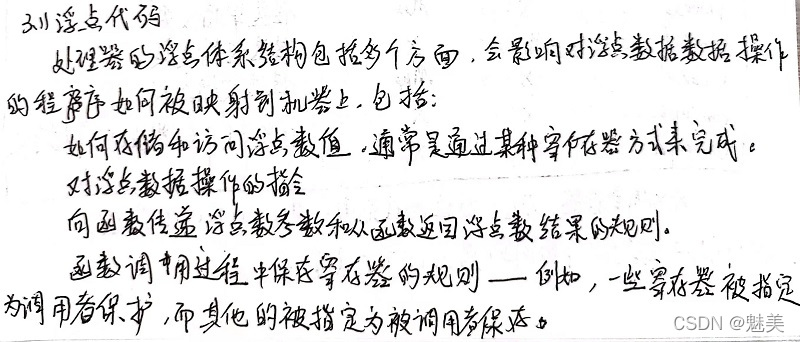 3.11 浮点代码
处理器的浮点体系结构包括多个方面,会影响对浮点数据数据操作
的程序序如何被映射到机器上,包括:
如何存储和访问浮点数值。通常是通过某种寄存器方式来完成。
对浮点数据操作的指令
向函数传递浮点数参数和从函数返回浮点数结果的规则。
函数调用过程中保存寄存器的规则——例如,一些寄存器被指定
为调用者保护,而其他的被指定为被调用者保存。
CSDN @魅美